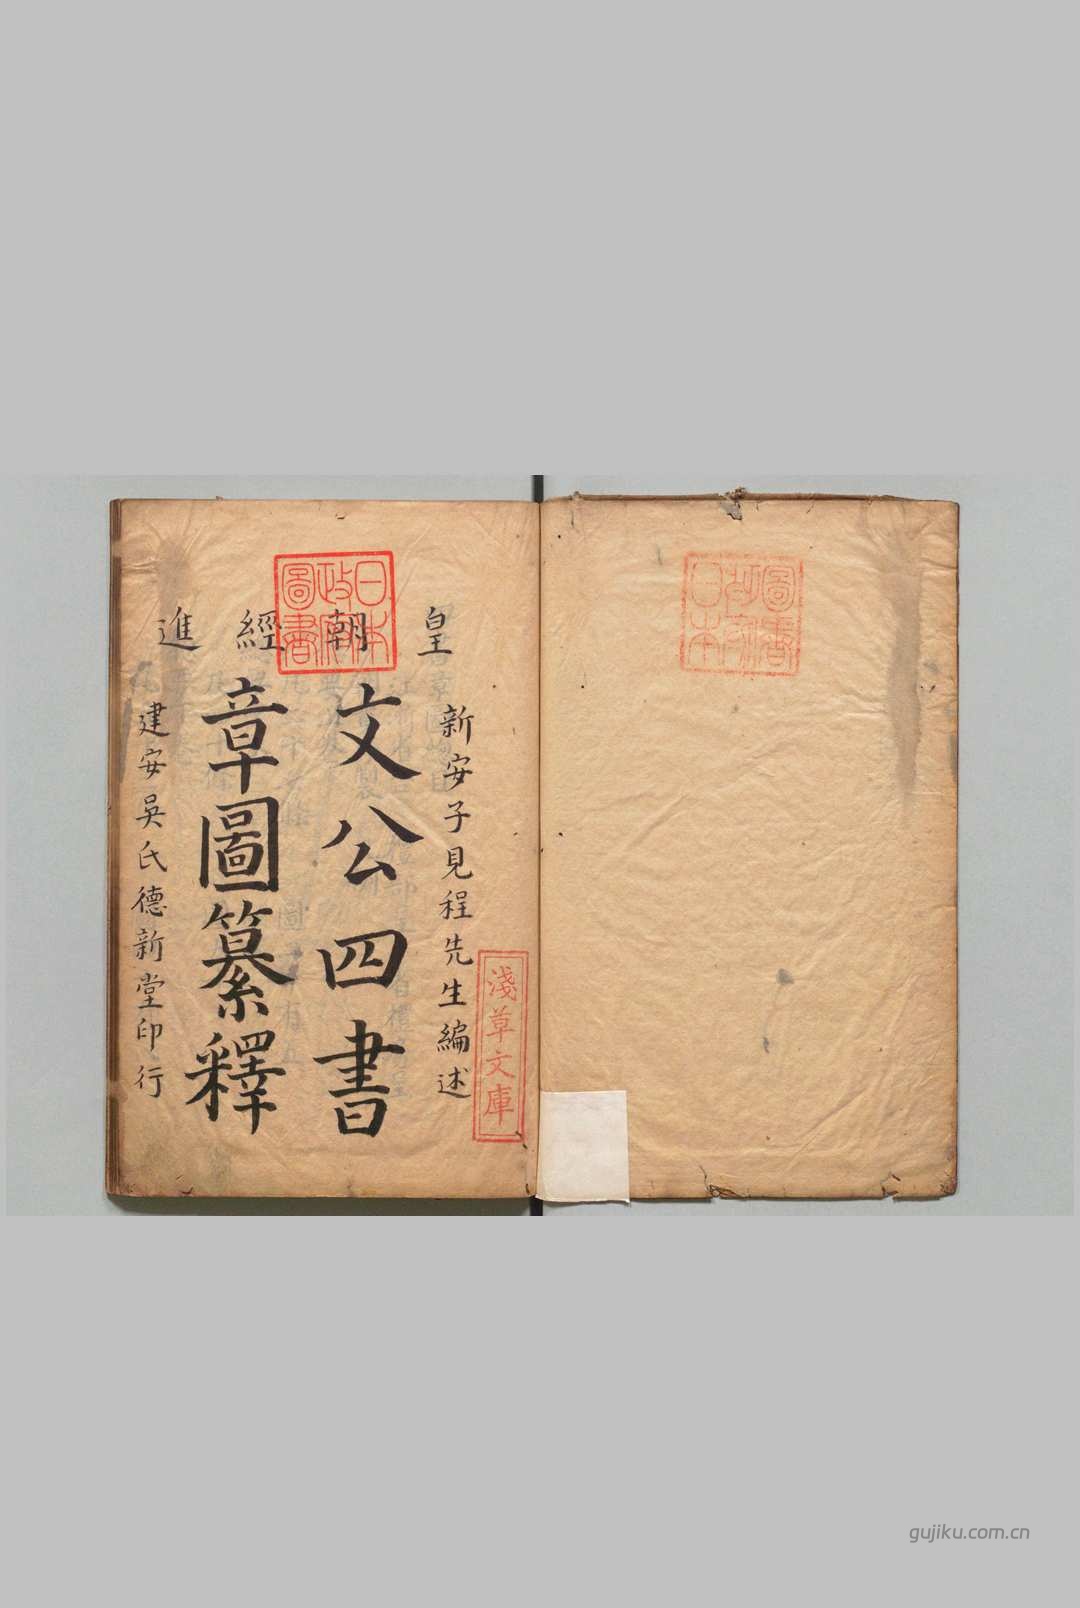 皇朝經進
新安子見程先生編述
文公四書
章圖纂釋
建安吳氏德新堂印行
日本
政府
圖書
淺草文庫
gujiku.com.cn